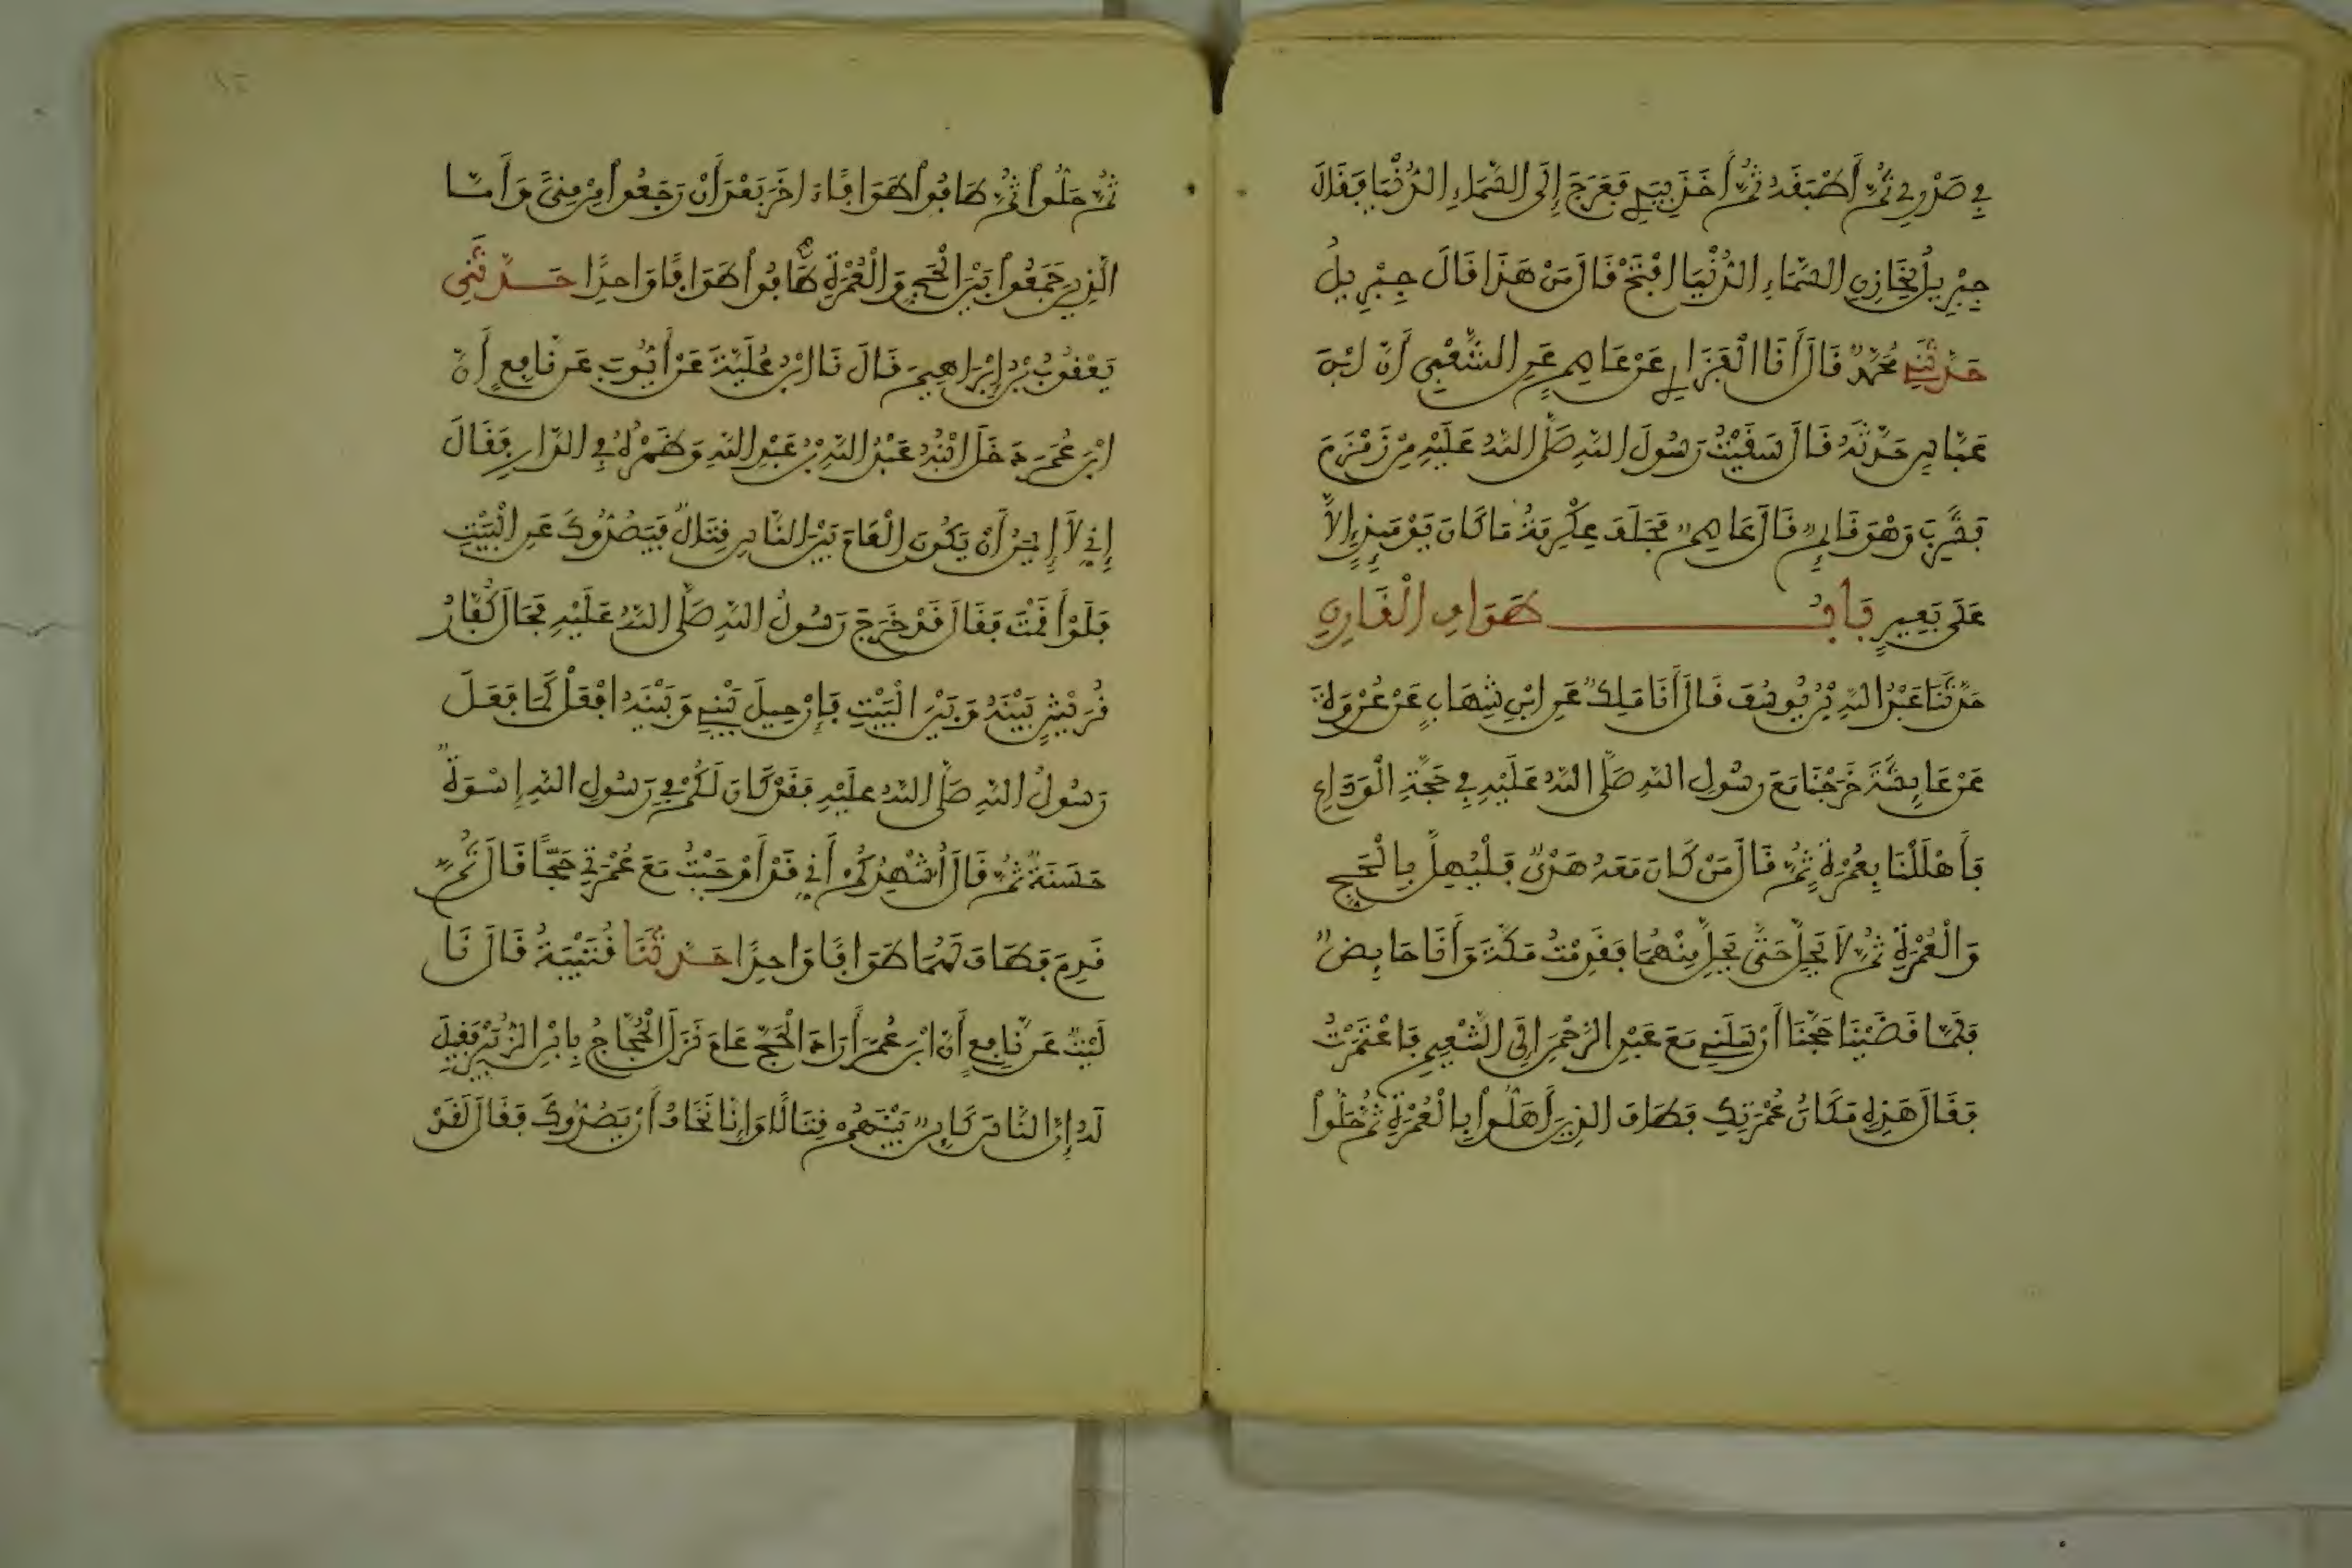 فِي صَدْرِي ثُمَّ أَطْبَقَهُ ثُمَّ أَخَذَ بِيَدِي فَعَرَجَ إِلَى السَّمَاءِ الدُّنْيَا فَقَالَ
جِبْرِيلُ لِخَازِنِ السَّمَاءِ الدُّنْيَا افْتَحْ قَالَ مَنْ هَذَا قَالَ جِبْرِيلُ
حَدَّثَنِي مُحَمَّدٌ قَالَ أَنَا الْفَزَارِي عَنْ عَاصِمٍ عَنِ الشَّعْبِي أَنَّ ابْنَ
عَبَّاسٍ حَدَّثَهُ قَالَ سَقَيْتُ رَسُولَ اللَّهِ صَلَّى اللَّهُ عَلَيْهِ مِنْ زَمْزَمَ
فَشَرِبَ وَهْوَ قَائِمٌ قَالَ عَاصِمٌ فَحَلَفَ عِكْرِمَةُ مَا كَانَ يَوْمَئِذٍ إِلَّا
عَلَى بَعِيرٍ بَابُ طَوَافِ الْقَارِنِ
حَدَّثَنَا عَبْدُ اللَّهِ بْنُ يُوسُفَ قَالَ أَنَا مَلِكٌ عَنِ ابْنِ شِهَابٍ عَنْ عُرْوَةَ
عَنْ عَائِشَةَ خَرَجْنَا مَعَ رَسُولِ اللَّهِ صَلَّى اللَّهُ عَلَيْهِ فِي حَجَّةِ الْوَدَاعِ
فَأَهْلَلْنَا بِعُمْرَةٍ ثُمَّ قَالَ مَنْ كَانَ مَعَهُ هَدْيٌ فَلْيُهِلَّ بِالْحَجِّ
وَالْعُمْرَةِ ثُمَّ لَا يَحِلَّ حَتَّى يَحِلَّ مِنْهُمَا فَقَدِمْتُ مَكَّةَ وَأَنَا حَائِضٌ
فَلَمَّا قَضَيْنَا حَجَّنَا أَرْسَلَنِي مَعَ عَبْدِ الرَّحْمَنِ إِلَى التَّنْعِيمِ فَاعْتَمَرْتُ
فَقَالَ هَذِهِ مَكَانُ عُمْرَتِكِ فَطَافَ الذِينَ أَهَلُّوا بِالْعُمْرَةِ ثُمَّ حَلُّوا
ثُمَّ حَلُّوا ثُمَّ طَافُوا طَوَافًا اخَرَ بَعْدَ أَنْ رَجَعُوا مِنْ مِنًى وَأَمَّا
الَّذِينَ جَمَعُوا بَيْنَ الْحَجِّ وَالْعُمْرَةِ طَافُوا طَوَافًا وَاحِدًا حَدَّثَنِي
يَعْقُوبُ بْنُ إِبْرَاهِيمَ قَالَ نَا ابْنُ عُلَيَّةَ عَنْ أَيُّوبَ عَنْ نَافِعٍ أَنَّ
ابْنَ عُمَرَ دَخَلَ ابْنُهُ عَبْدُ اللَّهِ بْنُ عَبْدِ اللَّهِ وَظَهْرُهُ فِي الدَّارِ فَقَالَ
إِنِّي لَا إِيمَنُ أَنْ يَكُونَ الْعَامَ بَيْنَ النَّاسِ قِتَالٌ فَيَصُدُّوكَ عَنِ الْبَيْتِ
فَلَوْ أَقَمْتَ فَقَالَ قَدْ خَرَجَ رَسُولُ اللَّهِ صَلَّى اللَّهُ عَلَيْهِ فَحَالَ كُفَّارُ
قُرَيْشٍ بَيْنَهُ وَبَيْنَ الْبَيْتِ فَإِنْ حِيلَ بَيْنِي وَبَيْنَهُ افْعَلْ كَمَا فَعَلَ
رَسُولُ اللَّهِ صَلَّى اللَّهُ عَلَيْهِ فَقَدْ كَانَ لَكُمْ فِي رَسُولِ اللَّهِ إِسْوَةٌ
حَسَنَةٌ ثُمَّ قَالَ أُشْهِدُكُمْ أَنِّي قَدْ أَوْجَبْتُ مَعَ عُمْرَتِي حَجًّا قَالَ ثُمَّ
قَدِمَ فَطَافَ لَهُمَا طَوَافًا وَاحِدًا حَدَّثَنَا قُتَيْبَةُ قَالَ نَا
لَيْثٌ عَنْ نَافِعٍ أَنَّ ابْنَ عُمَرَ أَرَادَ الْحَجَّ عَامَ نَزَلَ الْحُجَّاجُ بِابْنِ الزُّبَيْرِ فَقِيلَ
لَهُ إِنَّ النَّاسَ كَائِنٌ بَيْنَهُمْ قِتَالٌ وَإِنَّا نَخَافُ أَنْ يَصُدُّوكَ فَقَالَ لَقَدْ